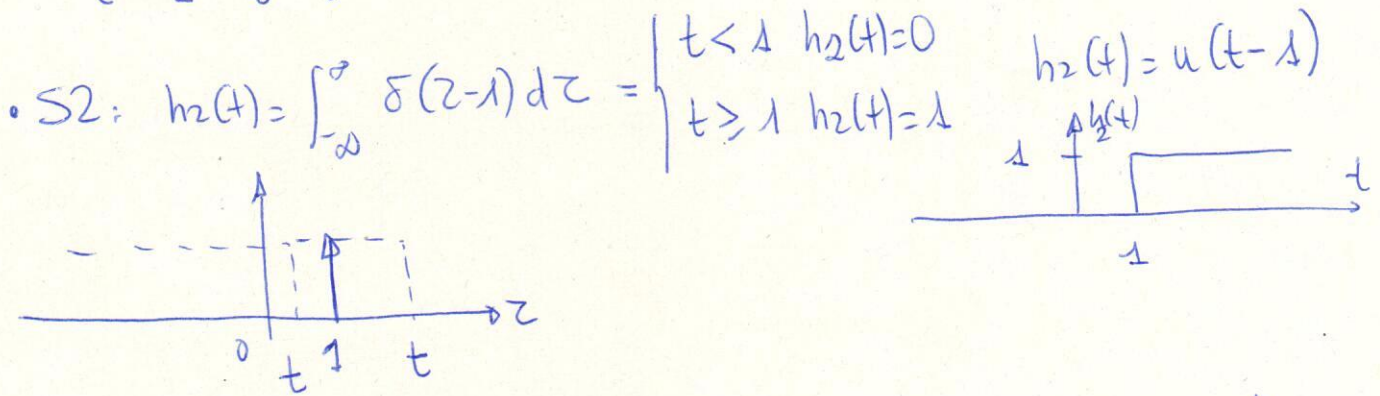 • S2: h2(t) = ∫_{-∞}^{∞} δ(τ-1) dτ = { t < 1 h2(t)=0
t ≥ 1 h2(t)=1
h2(t) = u(t-1)
1 h2(t)
t
1
τ
0 t 1 t